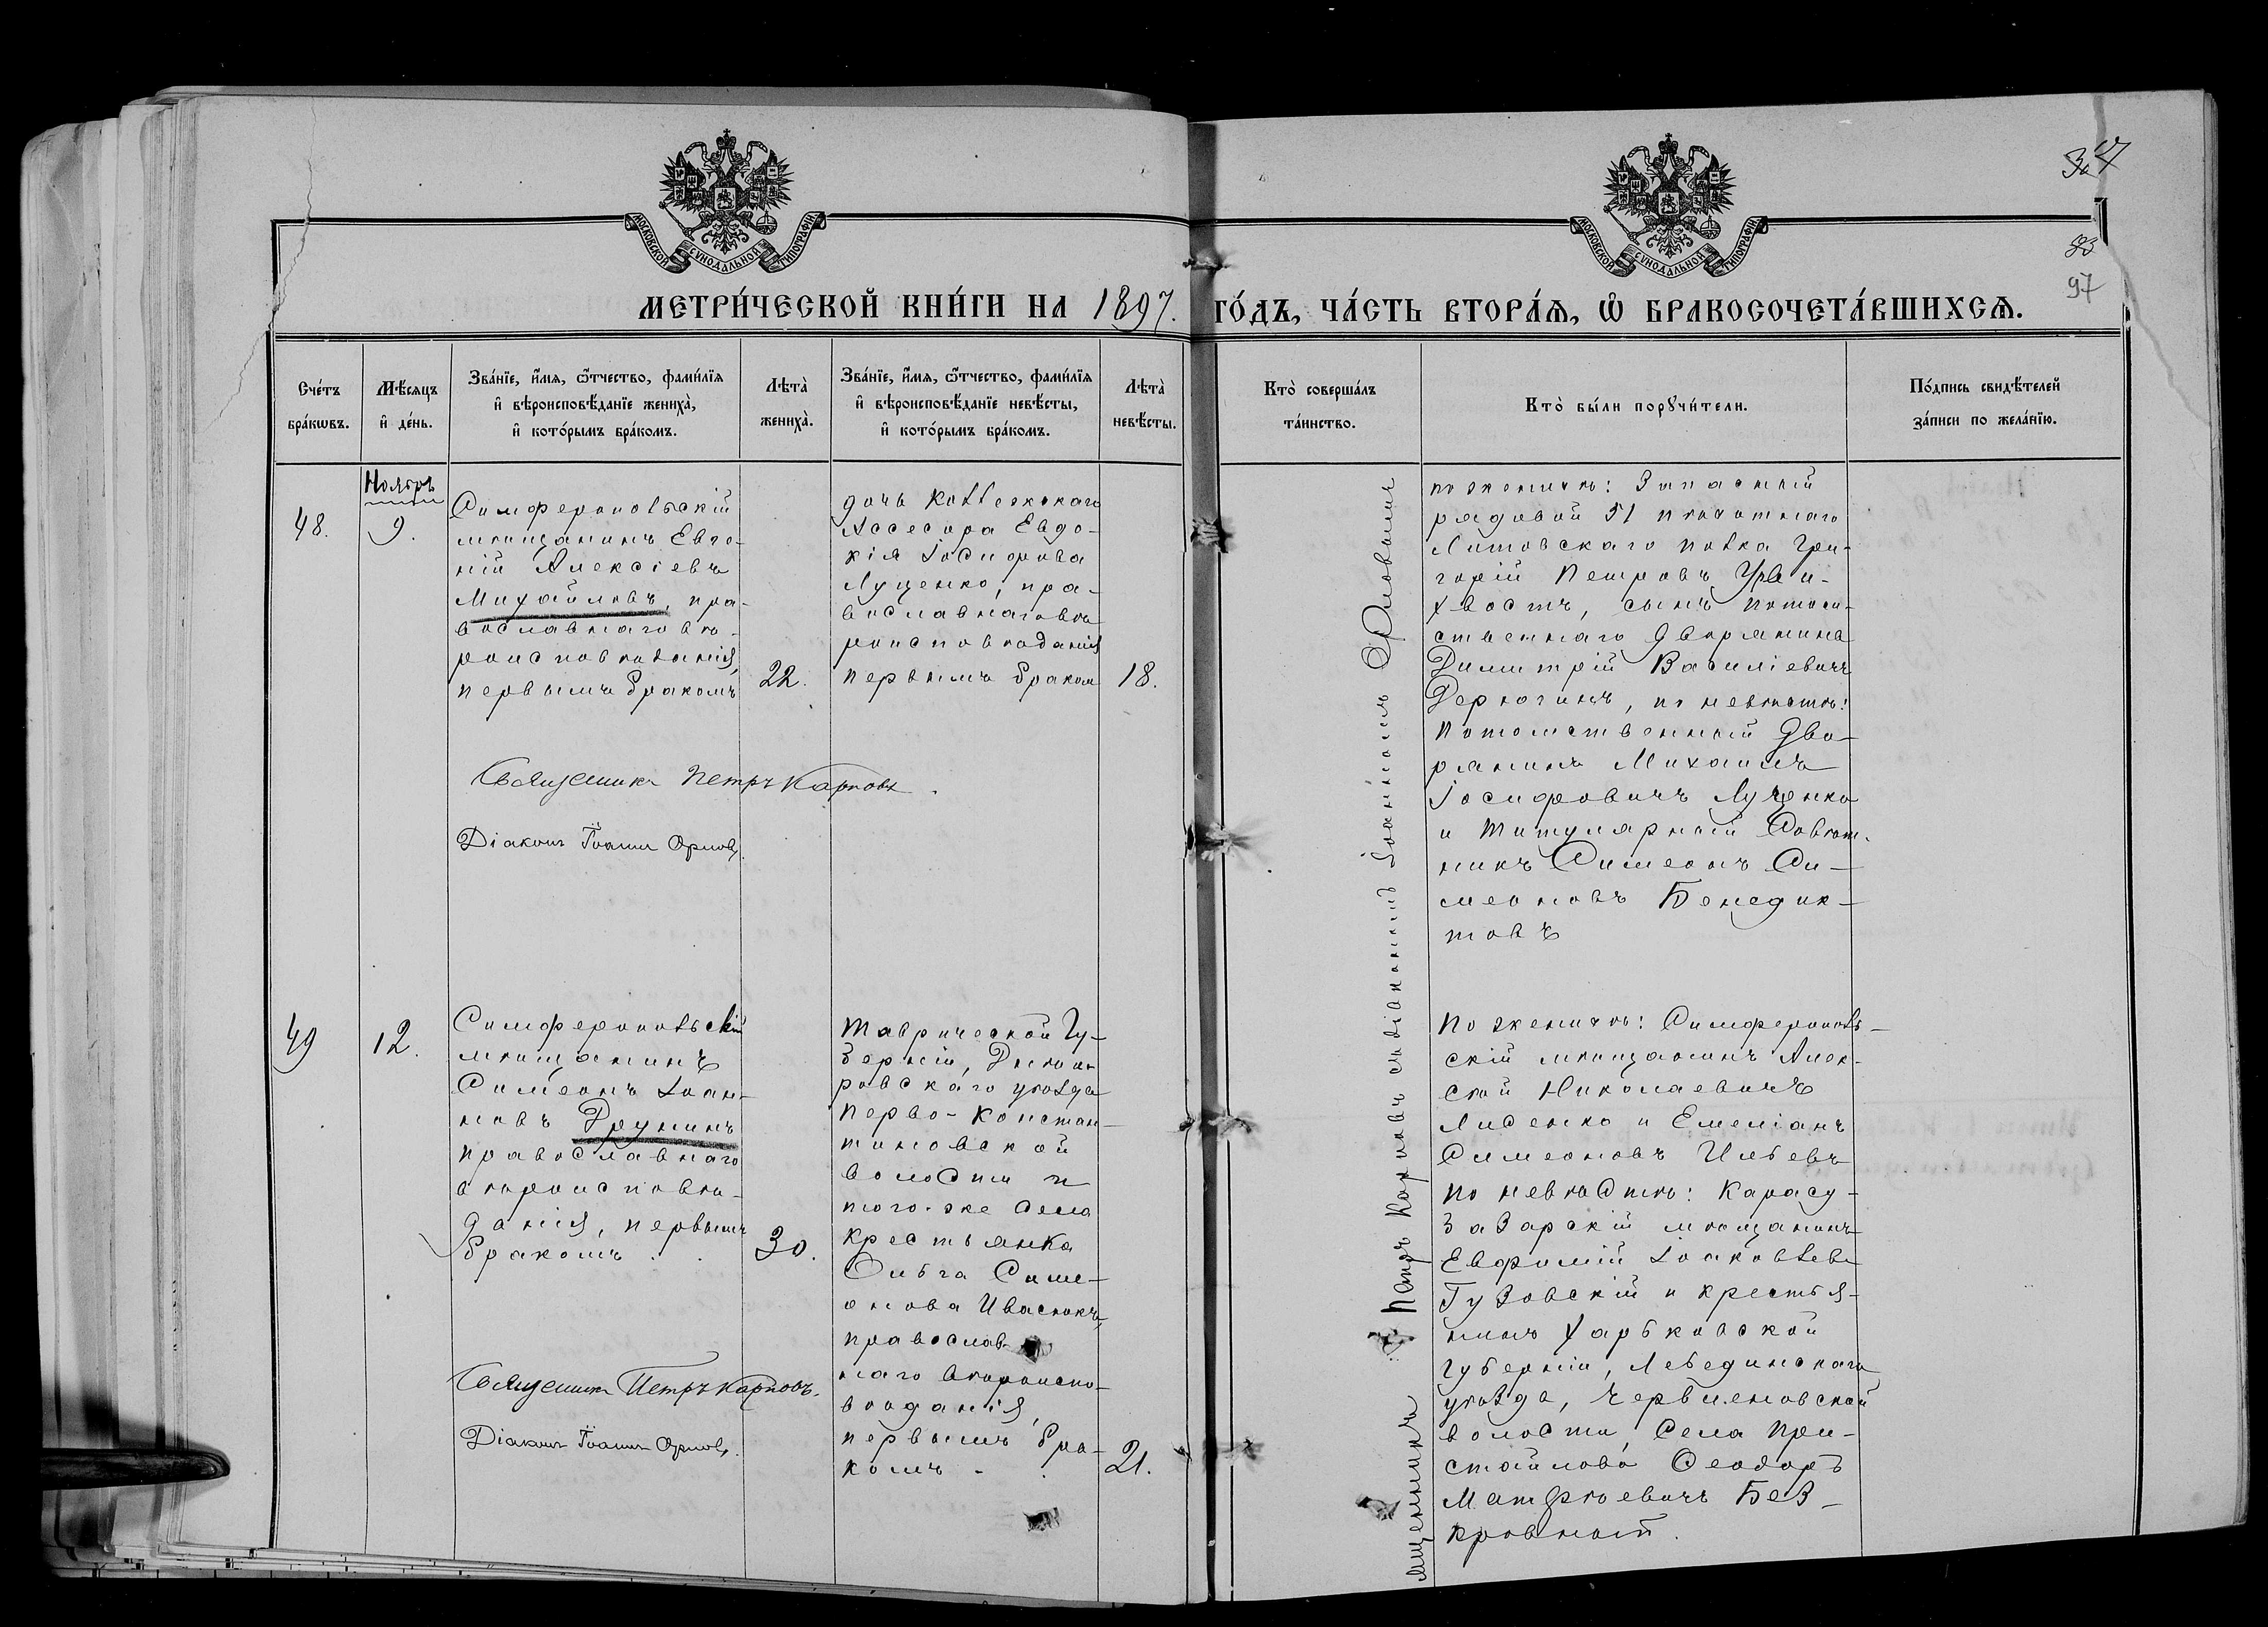 МОСКОВСКОЙ СУНОДАЛЬНОЙ ТИПОГРАФІИ
МОСКОВСКОЙ СУНОДАЛЬНОЙ ТИПОГРАФІИ
97
МЕТРИ́ЧЕСКОЙ КНИ́ГИ НА 1897. ГО́ДЪ, ЧА́СТЬ ВТОРА́Ѧ, Ѡ҆ БРАКОСОЧЕТА́ВШИХСѦ.
Сче́тъ
бра́кѡвъ.
Мѣ́сѧцъ
и҆ де́нь.
Зва́нїе, и҆́мѧ, ѻ҆́тчество, фами́лїѧ
и҆ вѣроисповѣ́данїе жениха̀,
и҆ кото́рымъ бра́комъ.
Лѣта̀
жениха̀.
Зва́нїе, и҆́мѧ, ѻ҆́тчество, фами́лїѧ
и҆ вѣроисповѣ́данїе невѣ́сты,
и҆ кото́рымъ бра́комъ.
Лѣта̀
невѣ́сты.
Кто̀ соверша́лъ
та́инство.
Кто̀ бы́ли порꙋчи́тели.
По́дпись свидѣ́телей
за́писи по жела́нїю.
Ноябрь
48.
9.
Симферопольскій
мѣщанинъ Евге-
ній Алексіевъ
Михайловъ, пра-
вославнаго вѣ-
роисповѣданія,
первымъ бракомъ
22.
дочь Коллежскаго
Ассесора Евдо-
кія Іосифова
Луценко, пра-
вославнаго вѣ
роисповѣданія
первымъ браком
18.
Священникъ Петръ Карповъ.
Діаконъ Іоаннъ Орловъ.
по женихѣ: Запасный
рядовой 51 пѣхотнаго
Литовскаго полка Гри-
горій Петровъ
хвостъ, сынъ потом-
ственнаго дворянина
Димитрій Василіевичъ
Дерюгинъ, по невѣстѣ:
Потомственный Дво-
рянинъ Михаилъ
Іосифовичъ Луценко
и Титулярный Совѣт-
никъ Симеонъ Си-
меоновъ Бенедик-
товъ
49
12.
Симферопольскій
мѣщанинъ
Симеонъ Іоан-
новъ Друнинъ
православнаго
вѣроисповѣ-
данія, первымъ
бракомъ
30.
Таврической Гу-
берніи, Днѣп
ровскаго уѣзда
Перво-Констан-
тиновской
волости и
того-же села
крестьянка
Ольга Симе-
онова Ивасюкъ,
православ-
наго вѣроиспо-
вѣданія,
первымъ бра-
комъ
21.
Священникъ Петръ Карповъ.
Діаконъ Іоаннъ Орловъ.
ященникъ Петръ Карповъ съ діакономъ Іоанномъ Орловымъ
по женихѣ: Симферополь-
скій мѣщанинъ Алек-
сѣй Николаевичъ
Лиденко и Емеліанъ
Симеоновъ Ильевъ
по невѣстѣ: Карасу-
базарскій мѣщанинъ
Евфимій Іаковлев
Гузовскій и крестья-
нинъ Харьковской
губерніи, Лебединскаго
уѣзда, Червленовской
волости, села При-
стайлова Ѳеодоръ
Матѳѣевичъ Без-
кровный.